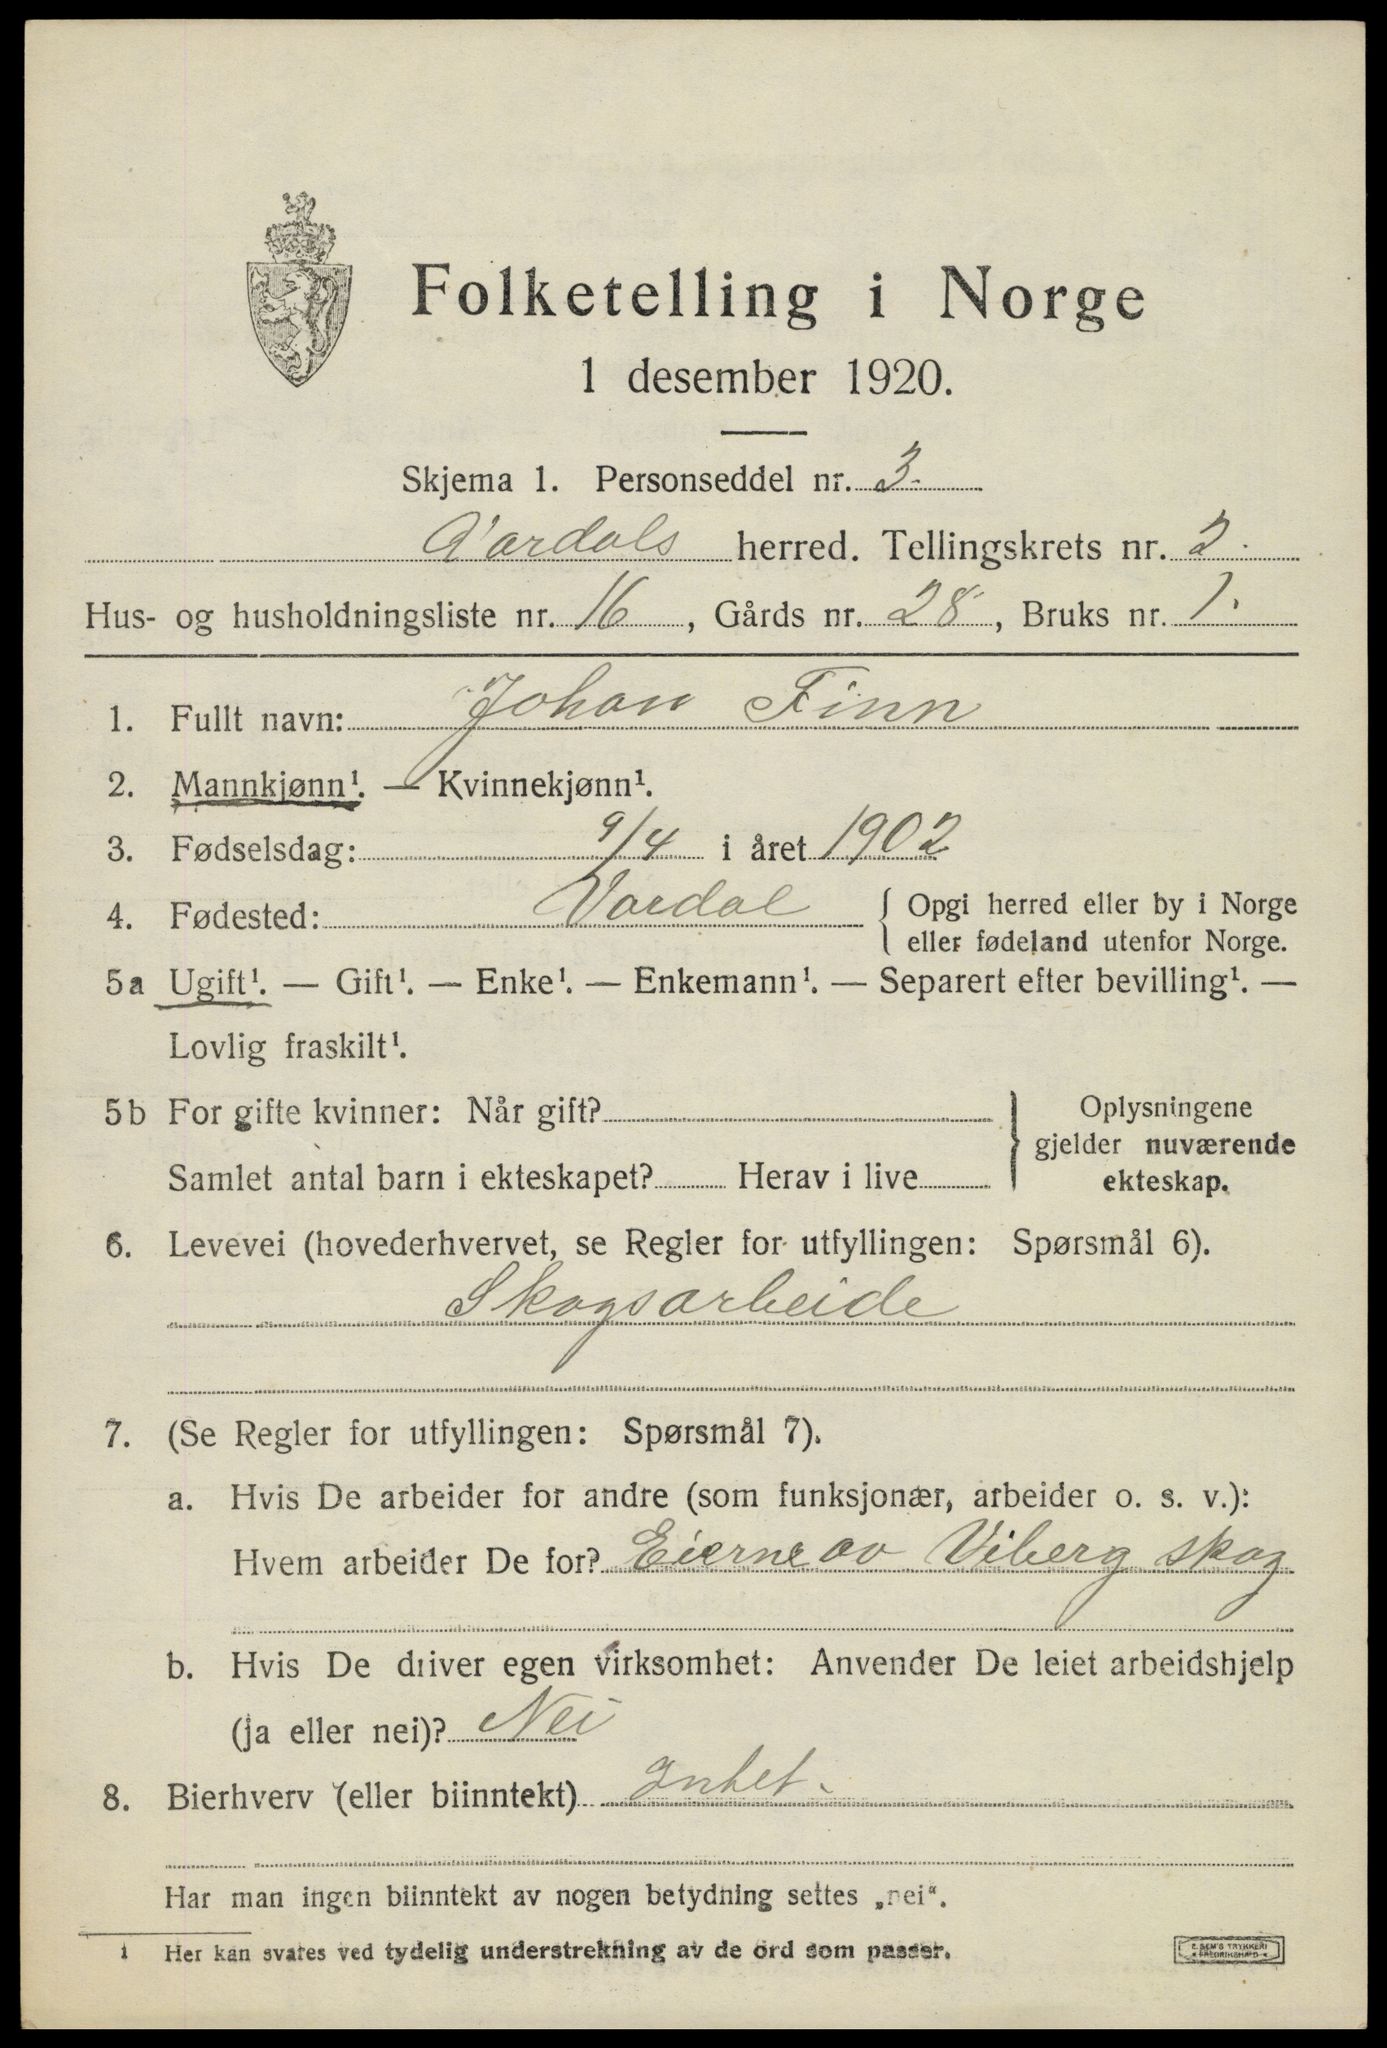 Folketelling i Norge
1 desember 1920.
Skjema 1. Personseddel nr. 3.
Aardals herred. Tellingskrets nr. 2.
Hus- og husholdningsliste nr. 16, Gårds nr. 28, Bruks nr. 1.
1. Fullt navn: Johan Finn
2. Mannkjønn¹. — Kvinnekjønn¹.
3. Fødselsdag: 9/4 i året 1902
4. Fødested: Vardal { Opgi herred eller by i Norge
eller fødeland utenfor Norge.
5a Ugift¹. — Gift¹. — Enke¹. — Enkemann¹. — Separert efter bevilling¹. —
Lovlig fraskilt¹.
5b For gifte kvinner: Når gift? } Oplysningene
gjelder nuværende
Samlet antal barn i ekteskapet? Herav i live ekteskap.
6. Levevei (hovederhvervet, se Regler for utfyllingen: Spørsmål 6).
Skogsarbeide
7. (Se Regler for utfyllingen: Spørsmål 7).
a. Hvis De arbeider for andre (som funksjonær, arbeider o. s. v.):
Hvem arbeider De for? Eierne av Viberg skog
b. Hvis De driver egen virksomhet: Anvender De leiet arbeidshjelp
(ja eller nei)? Nei
8. Bierhverv (eller biinntekt) Intet.
Har man ingen biinntekt av nogen betydning settes „nei“.
1 Her kan svares ved tydelig understrekning av de ord som passer.
E. SEM'S TRYKKERI
FREDRIKSHALD